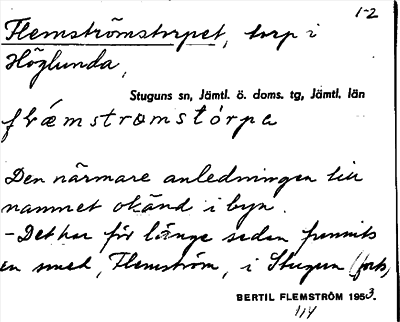 1-2
Flemströmstorpet, torp i
Höglunda,
Stuguns sn, Jämtl. ö. doms. tg, Jämtl. län
flǽmstromstòrpa
Den närmare anledningen till
namnet okänd i byn.
-Det har för länge sedan funnits
en smed, Flemström, i Stugun (forts.)
BERTIL FLEMSTRÖM 1953.